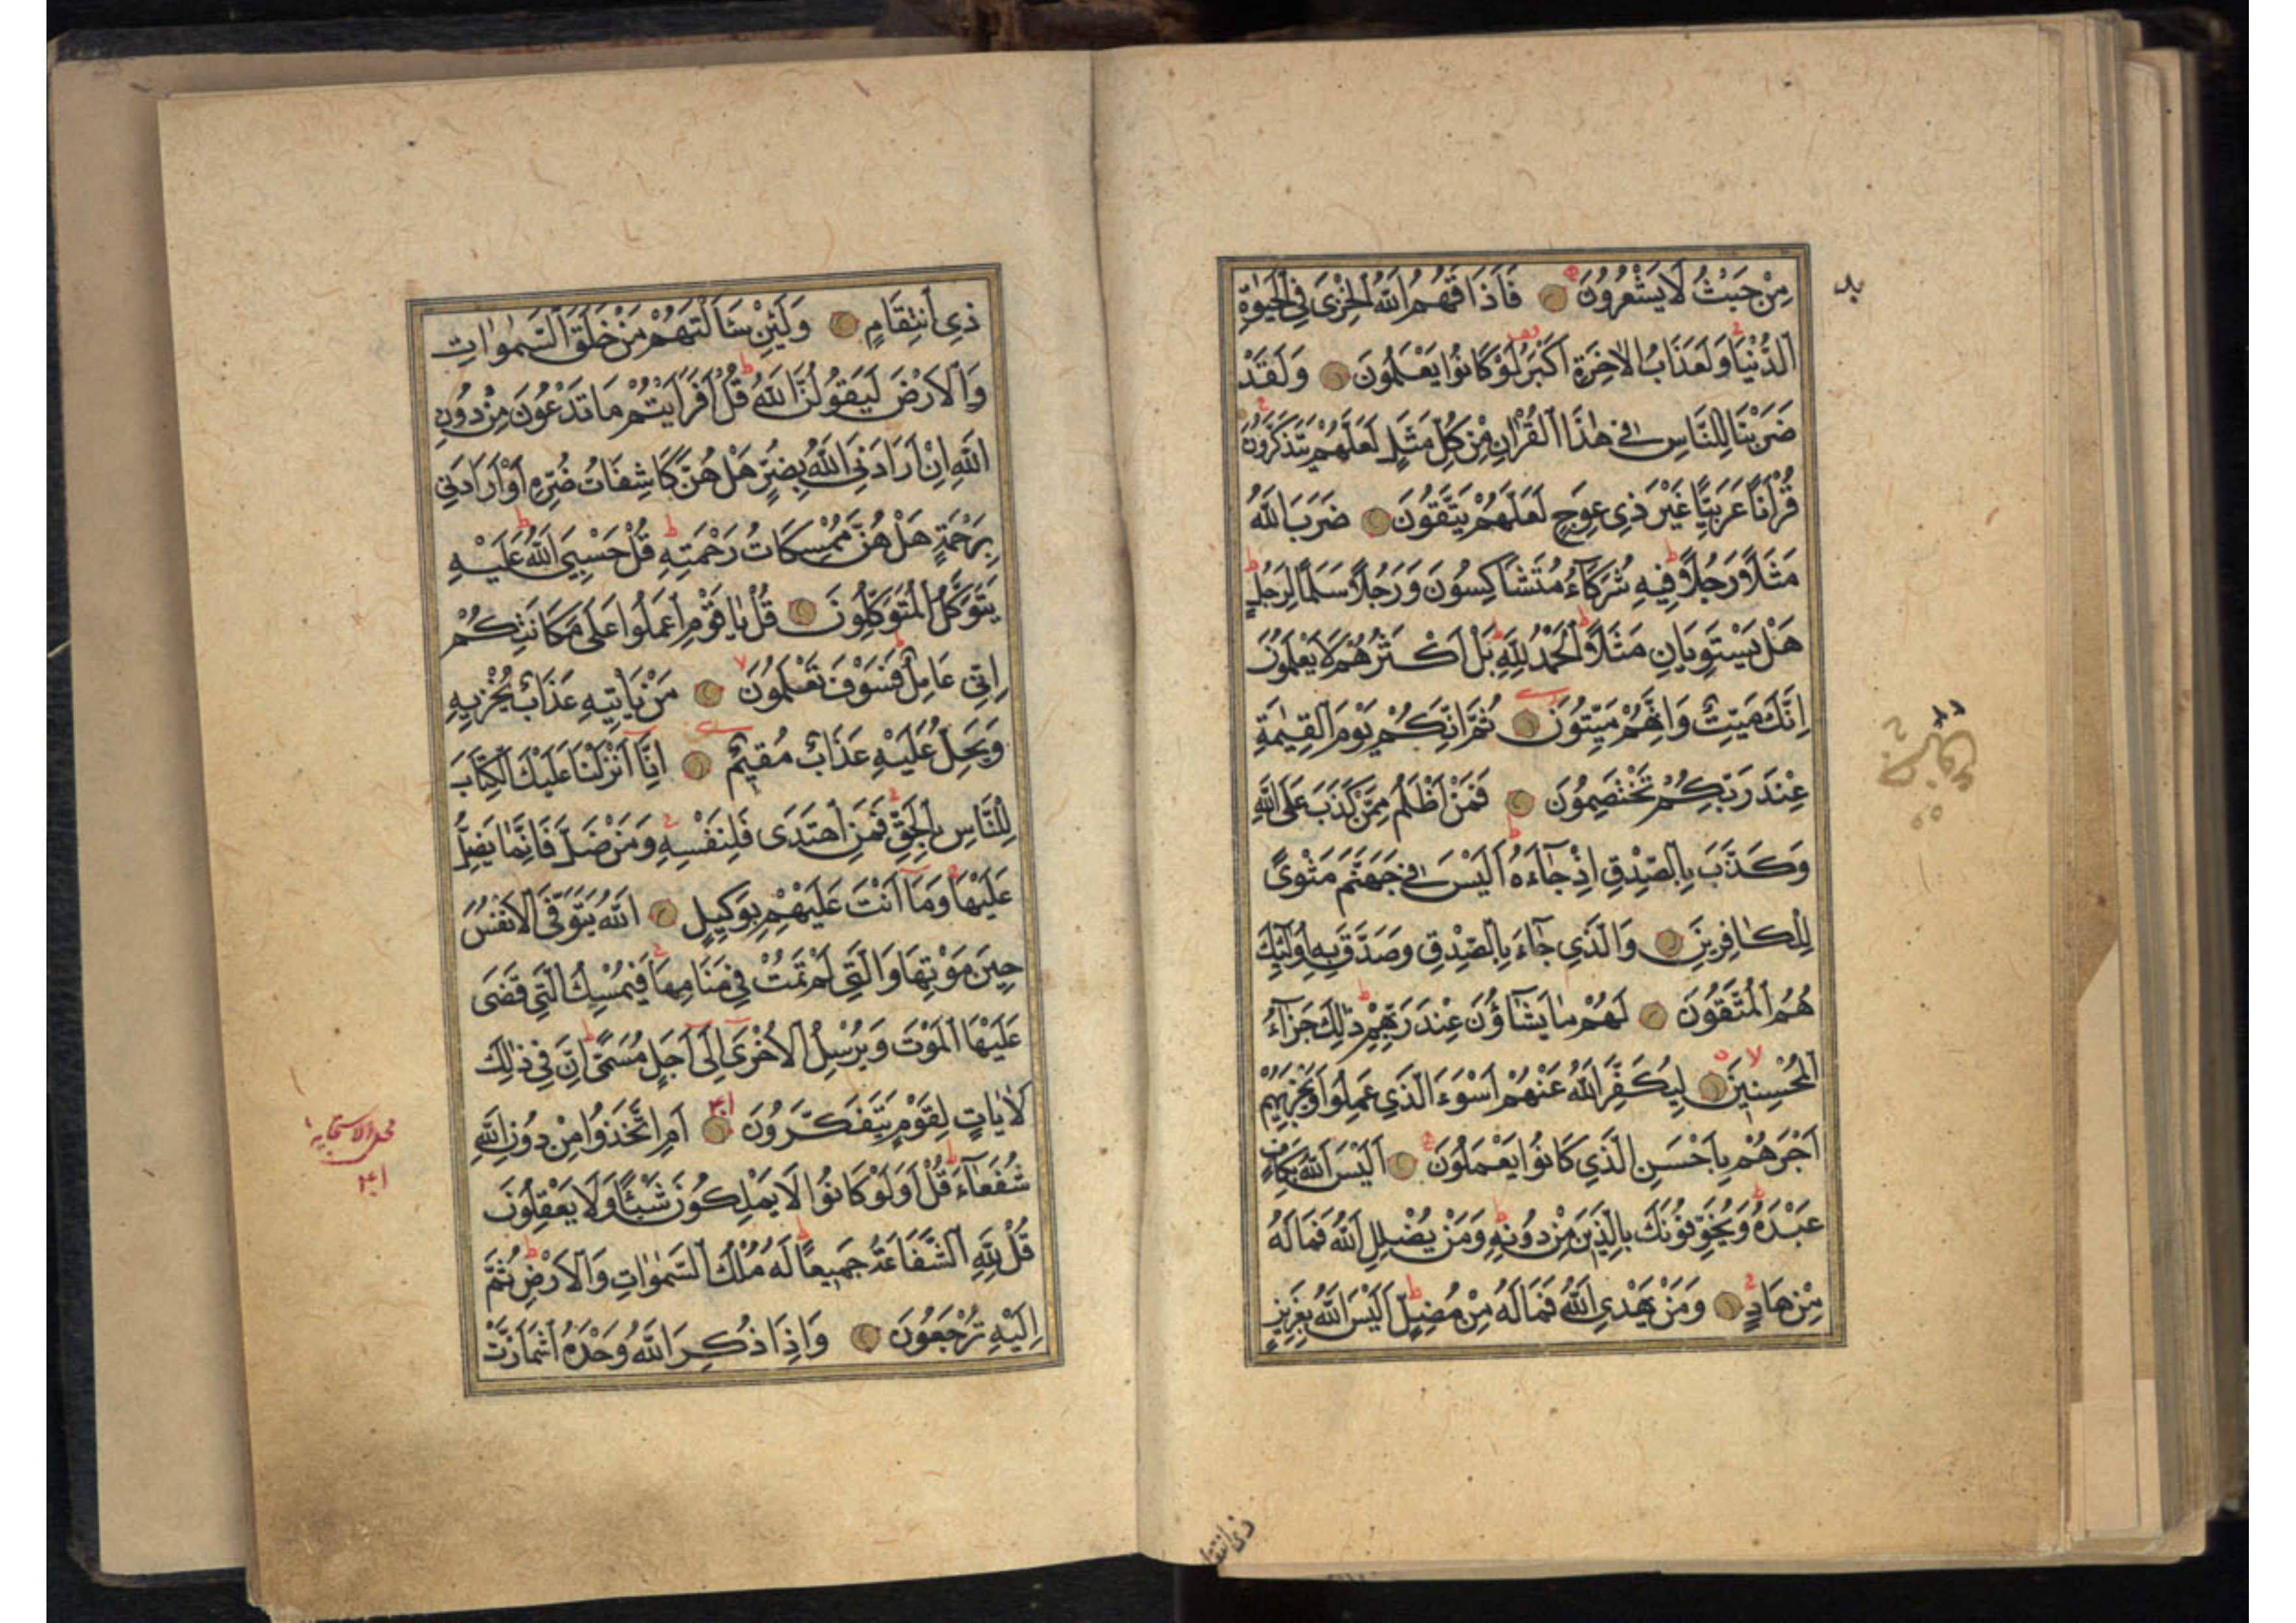 مِنْ حَيْثُ لَا يَشْعُرُونَ فَاَذَاقَهُمُ اللّٰهُ الْخِزْيَ فِي الْحَيٰوةِ
الدُّنْيَا وَلَعَذَابُ الْاٰخِرَةِ اَكْبَرُ لَوْ كَانُوا يَعْلَمُونَ وَلَقَدْ
ضَرَبْنَا لِلنَّاسِ فِي هٰذَا الْقُرْاٰنِ مِنْ كُلِّ مَثَلٍ لَعَلَّهُمْ يَتَذَكَّرُونَ
قُرْاٰنًا عَرَبِيًّا غَيْرَ ذِي عِوَجٍ لَعَلَّهُمْ يَتَّقُونَ ضَرَبَ اللّٰهُ
مَثَلًا رَجُلًا فِيهِ شُرَكَاءُ مُتَشَاكِسُونَ وَرَجُلًا سَلَمًا لِرَجُلٍ
هَلْ يَسْتَوِيَانِ مَثَلًا اَلْحَمْدُ لِلّٰهِ بَلْ اَكْثَرُهُمْ لَا يَعْلَمُونَ
اِنَّكَ مَيِّتٌ وَاِنَّهُمْ مَيِّتُونَ ثُمَّ اِنَّكُمْ يَوْمَ الْقِيٰمَةِ
عِنْدَ رَبِّكُمْ تَخْتَصِمُونَ فَمَنْ اَظْلَمُ مِمَّنْ كَذَبَ عَلَى اللّٰهِ
وَكَذَّبَ بِالصِّدْقِ اِذْ جَاءَهُ اَلَيْسَ فِي جَهَنَّمَ مَثْوًى
لِلْكَافِرِينَ وَالَّذِي جَاءَ بِالصِّدْقِ وَصَدَّقَ بِهِ اُولٰئِكَ
هُمُ الْمُتَّقُونَ لَهُمْ مَا يَشَاؤُنَ عِنْدَ رَبِّهِمْ ذٰلِكَ جَزَاءُ
الْمُحْسِنِينَ لِيُكَفِّرَ اللّٰهُ عَنْهُمْ اَسْوَءَ الَّذِي عَمِلُوا وَيَجْزِيَهُمْ
اَجْرَهُمْ بِاَحْسَنِ الَّذِي كَانُوا يَعْمَلُونَ اَلَيْسَ اللّٰهُ بِكَافٍ
عَبْدَهُ وَيُخَوِّفُونَكَ بِالَّذِينَ مِنْ دُونِهِ وَمَنْ يُضْلِلِ اللّٰهُ فَمَا لَهُ
مِنْ هَادٍ وَمَنْ يَهْدِي اللّٰهُ فَمَا لَهُ مِنْ مُضِلٍّ اَلَيْسَ اللّٰهُ بِعَزِيزٍ
ذي انتقا
ذِي انْتِقَامٍ وَلَئِنْ سَاَلْتَهُمْ مَنْ خَلَقَ السَّمٰوَاتِ
وَالْاَرْضَ لَيَقُولُنَّ اللّٰهُ قُلْ اَفَرَاَيْتُمْ مَا تَدْعُونَ مِنْ دُونِ
اللّٰهِ اِنْ اَرَادَنِيَ اللّٰهُ بِضُرٍّ هَلْ هُنَّ كَاشِفَاتُ ضُرِّهِ اَوْ اَرَادَنِي
بِرَحْمَةٍ هَلْ هُنَّ مُمْسِكَاتُ رَحْمَتِهِ قُلْ حَسْبِيَ اللّٰهُ عَلَيْهِ
يَتَوَكَّلُ الْمُتَوَكِّلُونَ قُلْ يَا قَوْمِ اعْمَلُوا عَلَى مَكَانَتِكُمْ
اِنِّي عَامِلٌ فَسَوْفَ تَعْلَمُونَ مَنْ يَاْتِيهِ عَذَابٌ يُخْزِيهِ
وَيَحِلُّ عَلَيْهِ عَذَابٌ مُقِيمٌ اِنَّا اَنْزَلْنَا عَلَيْكَ الْكِتَابَ
لِلنَّاسِ بِالْحَقِّ فَمَنِ اهْتَدَى فَلِنَفْسِهِ وَمَنْ ضَلَّ فَاِنَّمَا يَضِلُّ
عَلَيْهَا وَمَا اَنْتَ عَلَيْهِمْ بِوَكِيلٍ اَللّٰهُ يَتَوَفَّى الْاَنْفُسَ
حِينَ مَوْتِهَا وَالَّتِي لَمْ تَمُتْ فِي مَنَامِهَا فَيُمْسِكُ الَّتِي قَضَى
عَلَيْهَا الْمَوْتَ وَيُرْسِلُ الْاُخْرَى اِلَى اَجَلٍ مُسَمًّى اِنَّ فِي ذٰلِكَ
لَاٰيَاتٍ لِقَوْمٍ يَتَفَكَّرُونَ اَمِ اتَّخَذُوا مِنْ دُونِ اللّٰهِ
شُفَعَاءَ قُلْ اَوَلَوْ كَانُوا لَا يَمْلِكُونَ شَيْئًا وَلَا يَعْقِلُونَ
قُلْ لِلّٰهِ الشَّفَاعَةُ جَمِيعًا لَهُ مُلْكُ السَّمٰوَاتِ وَالْاَرْضِ ثُمَّ
اِلَيْهِ تُرْجَعُونَ وَاِذَا ذُكِرَ اللّٰهُ وَحْدَهُ اشْمَاَزَّتْ